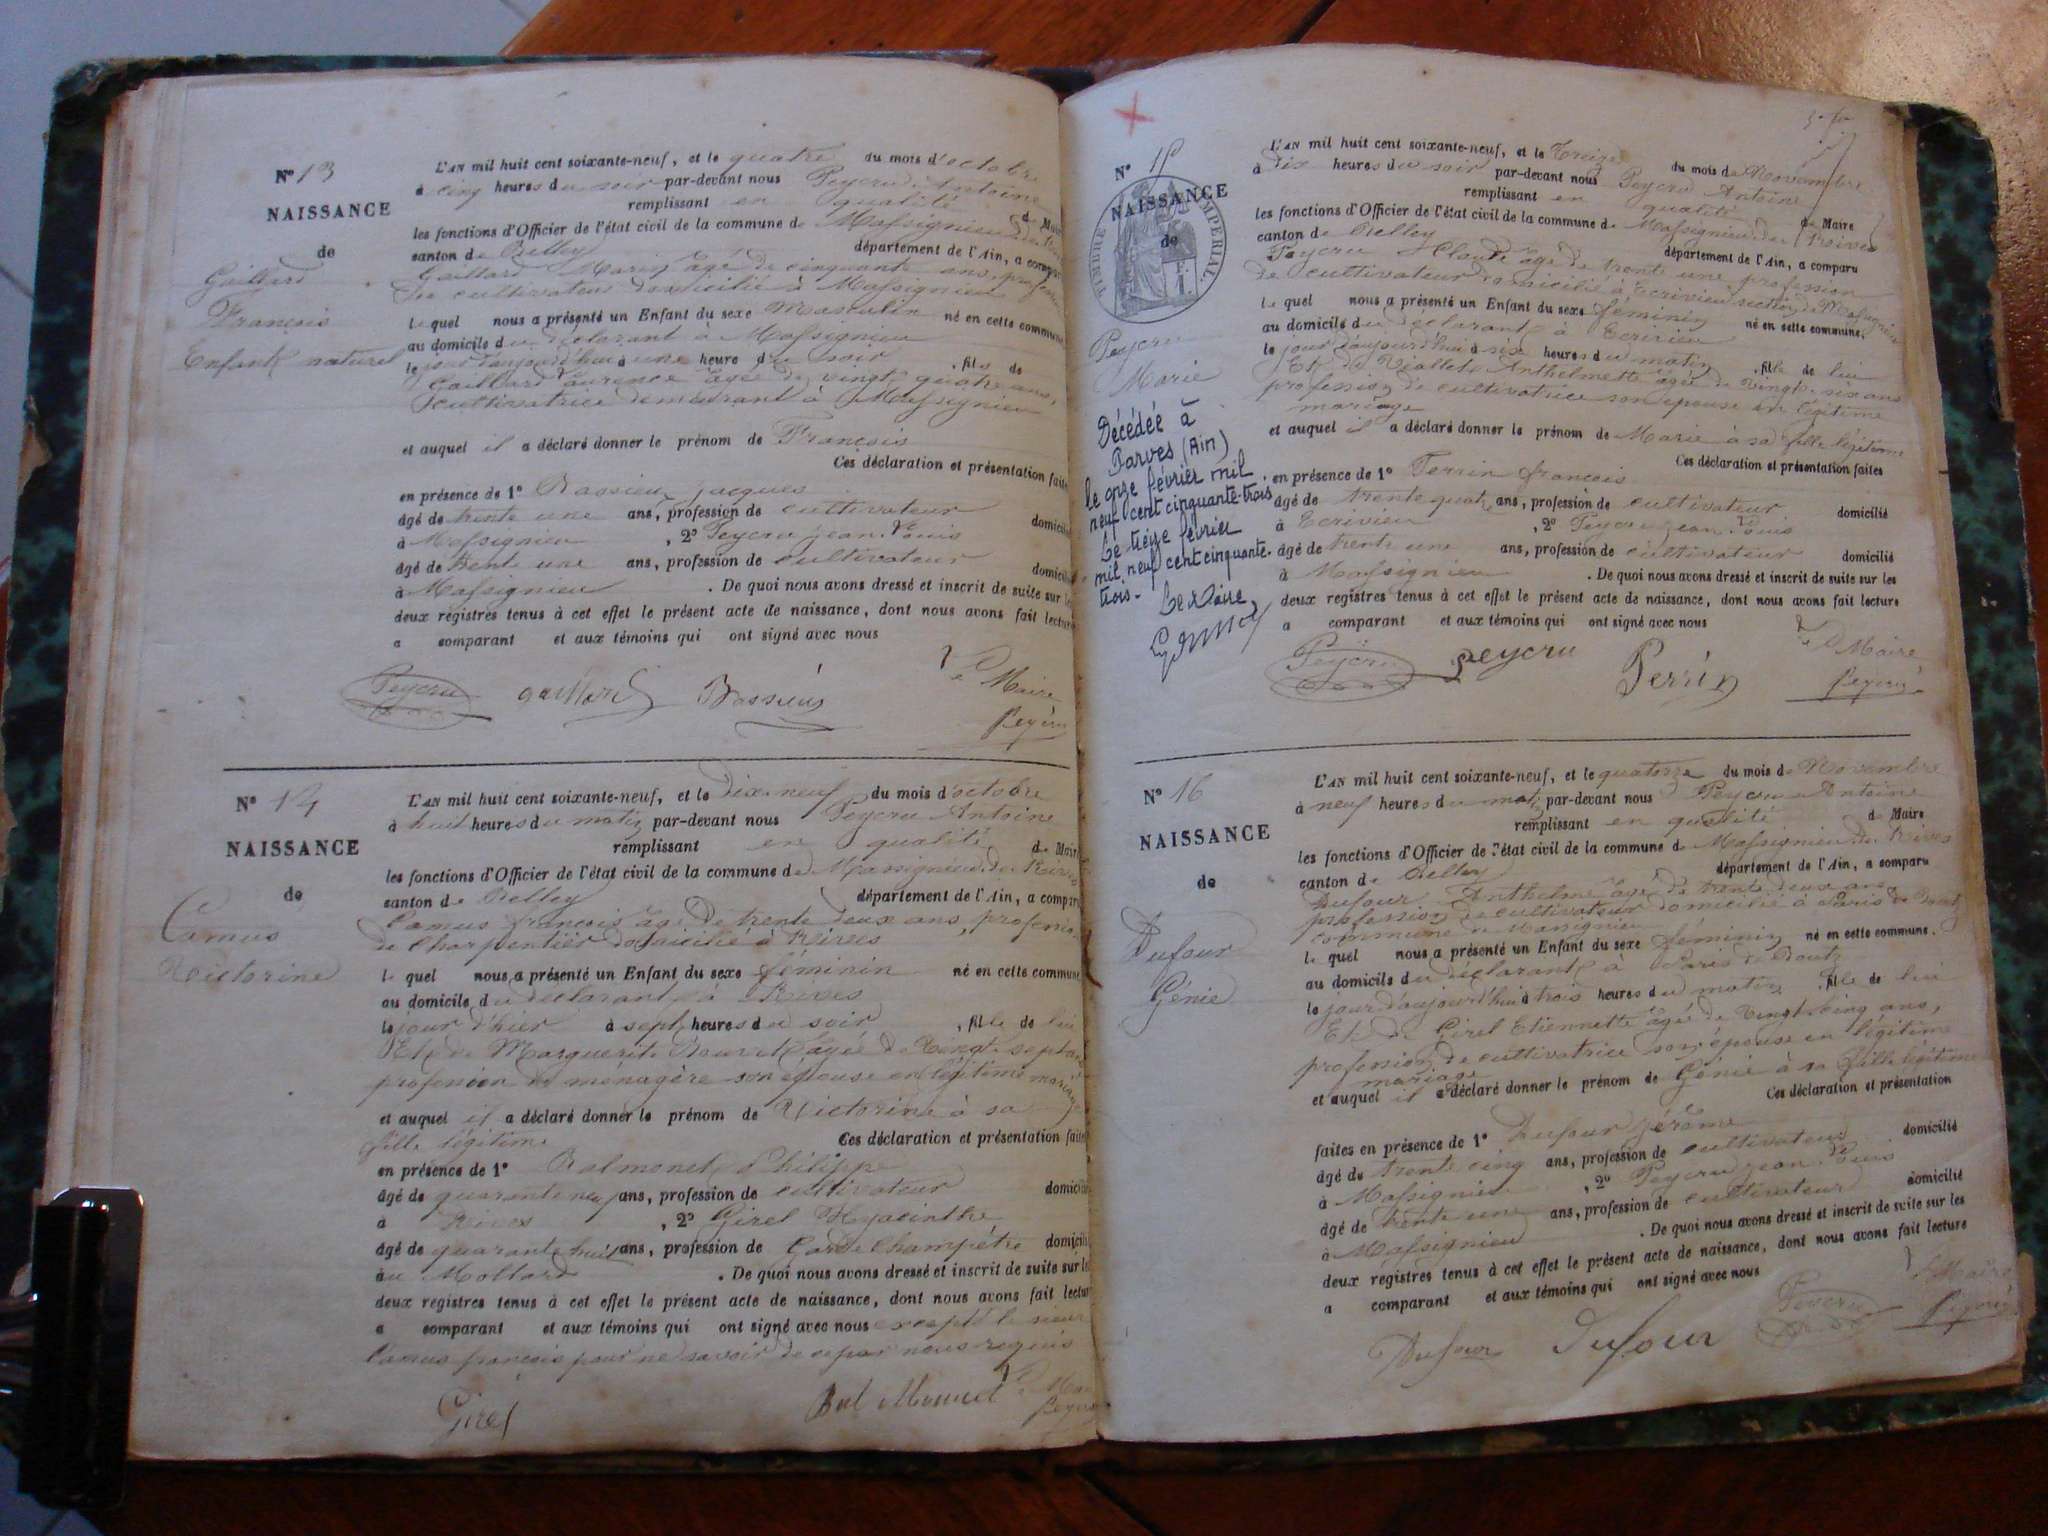 N° 13
NAISSANCE
de
Gaillard
François
Enfant naturel
L'AN mil huit cent soixante-neuf, et le quatre du mois d'octobre
à cinq heures du soir par-devant nous Peycru Antoine
remplissant en qualité de Maire
les fonctions d'Officier de l'état civil de la commune de Massignieu de
canton de Belley département de l'Ain, a comparu
Gaillard Marin âgé de cinquante ans, profession
de cultivateur domicilié à Massignieu
lequel nous a présenté un Enfant du sexe Masculin né en cette commune
au domicile du déclarant à Massignieu
le jour d'aujourd'hui à une heure du soir, fils de
Gaillard Laurence âgée de vingt quatre ans,
cultivatrice demeurant à Massignieu
et auquel il a déclaré donner le prénom de François
Ces déclaration et présentation faites
en présence de 1° Bassieux jacques
âgé de trente une ans, profession de cultivateur domicilié
à Massignieu, 2° Peycru jean Louis
âgé de trente une ans, profession de cultivateur domicilié
à Massignieu. De quoi nous avons dressé et inscrit de suite sur les
deux registres tenus à cet effet le présent acte de naissance, dont nous avons fait lecture
a comparant et aux témoins qui ont signé avec nous
Peycru gaillard Bassieux Le Maire
Peycru
N° 14
NAISSANCE
de
Camus
Victorine
L'AN mil huit cent soixante-neuf, et le Dix-neuf du mois d'octobre
à huit heures du matin par-devant nous Peycru Antoine
remplissant en qualité de Maire
les fonctions d'Officier de l'état civil de la commune de Massignieu de Rives
canton de Belley département de l'Ain, a comparu
Camus françois âgé de trente deux ans, profession
de Charpentier domicilié à Rives
lequel nous a présenté un Enfant du sexe féminin né en cette commune
au domicile du déclarant à Rives
le jour d'hier à sept heures du soir, fille de lui
Et de Marguerite âgée de Vingt sept ans
profession de ménagère son épouse en légitime mariage
et auquel il a déclaré donner le prénom de Victorine à sa
fille légitime Ces déclaration et présentation faites
en présence de 1° Balmonet Philippe
âgé de quarante neuf ans, profession de cultivateur domicilié
à Rives, 2° Girel Hyacinthe
âgé de quarante huit ans, profession de Garde Champêtre domicilié
au Mollard. De quoi nous avons dressé et inscrit de suite sur les
deux registres tenus à cet effet le présent acte de naissance, dont nous avons fait lecture
a comparant et aux témoins qui ont signé avec nous excepté le sieur
Camus françois pour ne savoir de ce par nous requis
Girel Bal Monnet Le Maire
Peycru
N° 15
NAISSANCE
de
TIMBRE IMPERIAL
Peycru
Marie
Décédée à
Parves (Ain)
le onze février mil
neuf cent cinquante-trois.
Le treize février
mil neuf cent cinquante-
trois.
Le Maire
L'AN mil huit cent soixante-neuf, et le Treize du mois de Novembre
à Dix heures du soir par-devant nous Peycru Antoine
remplissant en qualité de Maire
les fonctions d'Officier de l'état civil de la commune de Massignieu de Rives
canton de Belley département de l'Ain, a comparu
Peycru Claude âgé de trente une profession
de cultivateur domicilié à Ecrivieu section de Massignieu
lequel nous a présenté un Enfant du sexe féminin né en cette commune.
au domicile du déclarant à Ecrivieu
le jour d'aujourd'hui à six heures du matin, fille de lui
Et de Viallet Anthelmette âgée de Vingt-six ans
profession de cultivatrice son épouse en légitime
mariage
et auquel il a déclaré donner le prénom de Marie à sa fille légitime
Ces déclaration et présentation faites
en présence de 1° Perrin françois
âgé de trente quatre ans, profession de cultivateur domicilié
à Ecrivieu, 2° Peycru jean Louis
âgé de trente une ans, profession de cultivateur domicilié
à Massignieu. De quoi nous avons dressé et inscrit de suite sur les
deux registres tenus à cet effet le présent acte de naissance, dont nous avons fait lecture
a comparant et aux témoins qui ont signé avec nous
Peycru Peycru Perrin Le Maire
Peycru
N° 16
NAISSANCE
de
Dufour
Génie
L'AN mil huit cent soixante-neuf, et le quatorze du mois de Novembre
à neuf heures du matin par-devant nous Peycru Antoine
remplissant en qualité de Maire
les fonctions d'Officier de l'état civil de la commune de Massignieu de Rives
canton de Belley département de l'Ain, a comparu
Dufour Anthelme âgé de trente deux ans
profession de cultivateur domicilié à
commune de Massignieu
lequel nous a présenté un Enfant du sexe féminin né en cette commune.
au domicile du déclarant à
le jour d'aujourd'hui à trois heures du matin, fille de lui
Et de Girel Etiennette âgée de Vingt-cinq ans,
profession de cultivatrice son épouse en légitime
mariage
et auquel il a déclaré donner le prénom de Génie à sa fille légitime
Ces déclaration et présentation
faites en présence de 1° Dufour jérôme
âgé de trente cinq ans, profession de cultivateur domicilié
à Massignieu, 2° Peycru jean Louis
âgé de trente une ans, profession de cultivateur domicilié
à Massignieu. De quoi nous avons dressé et inscrit de suite sur les
deux registres tenus à cet effet le présent acte de naissance, dont nous avons fait lecture
a comparant et aux témoins qui ont signé avec nous
Dufour Dufour Peycru Le Maire
Peycru